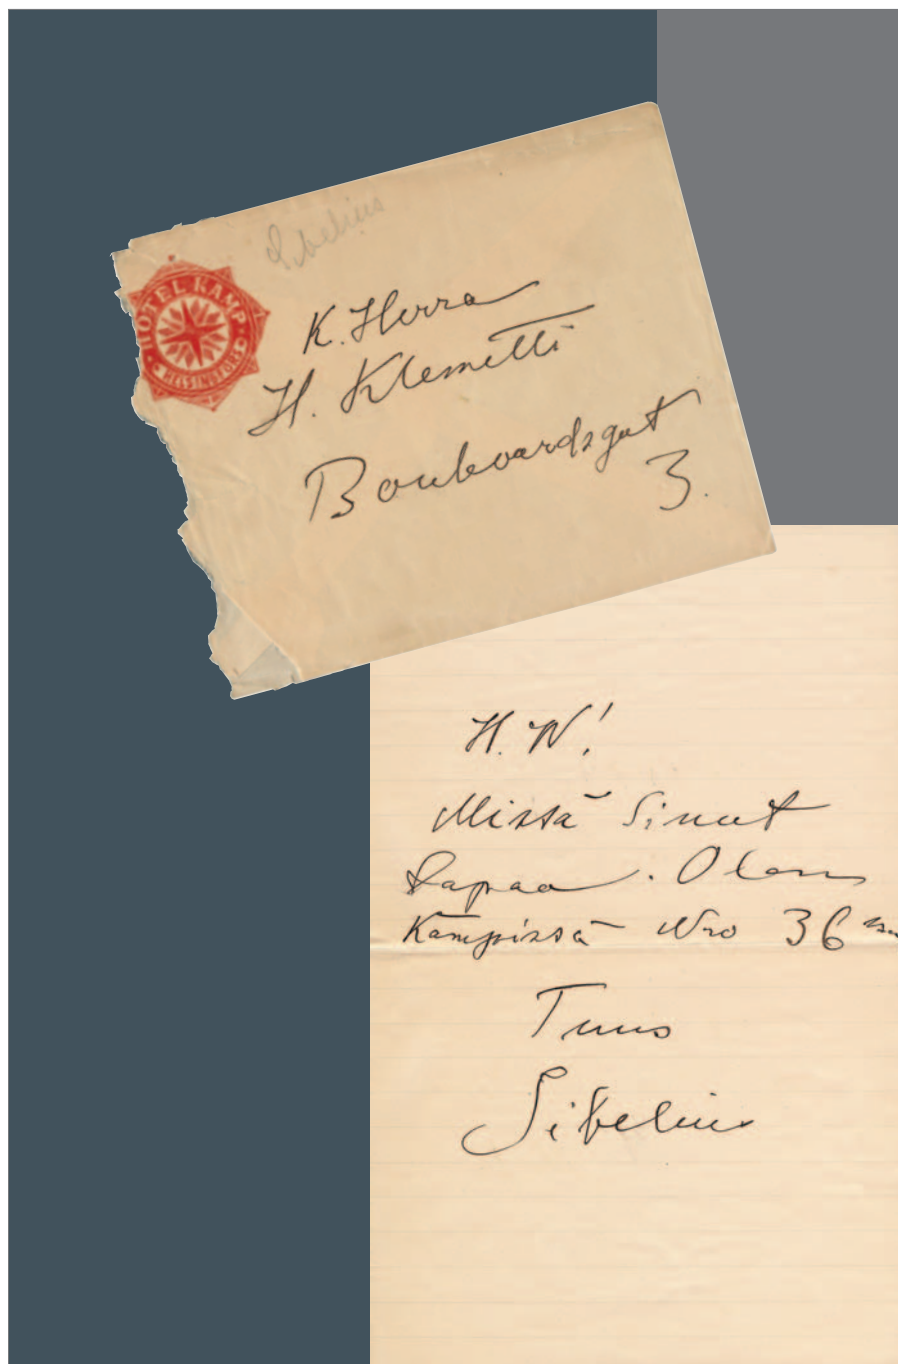 Sibelius
HOTEL KÄMP
HELSINGFORS
K. Herra
H. Klemetti
Boulevardsgat
3.
H. V!
Missä Sinut
Tapaa. Olen
Kämpissä Nro 36
Tuus
Sibelius